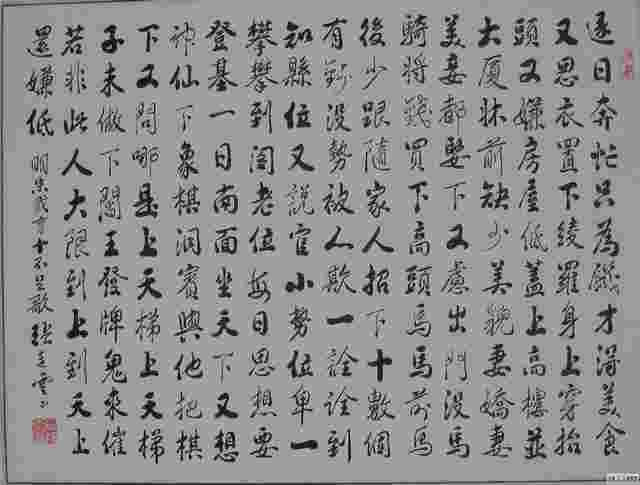 逐日奔忙只為飢才得美食
又思衣置下綾羅身上穿抬
頭又嫌房屋低蓋上高樓並
大厦床前缺少美貌妻嬌妻
美妾都娶下又慮出門沒馬
騎將錢買下高頭馬馬前馬
後少跟隨家人招下十數個
有錢沒勢被人欺一詮詮到
知縣位又說官小勢位卑一
攀攀到閣老位每日思想要
登基一日南面坐天下又想
神仙下象棋洞賓與他把棋
下又問哪是上天梯上天梯
子未做下閻王發牌鬼來催
若非此人大限到上到天上
還嫌低 明朱載堉十不足歌 張雲